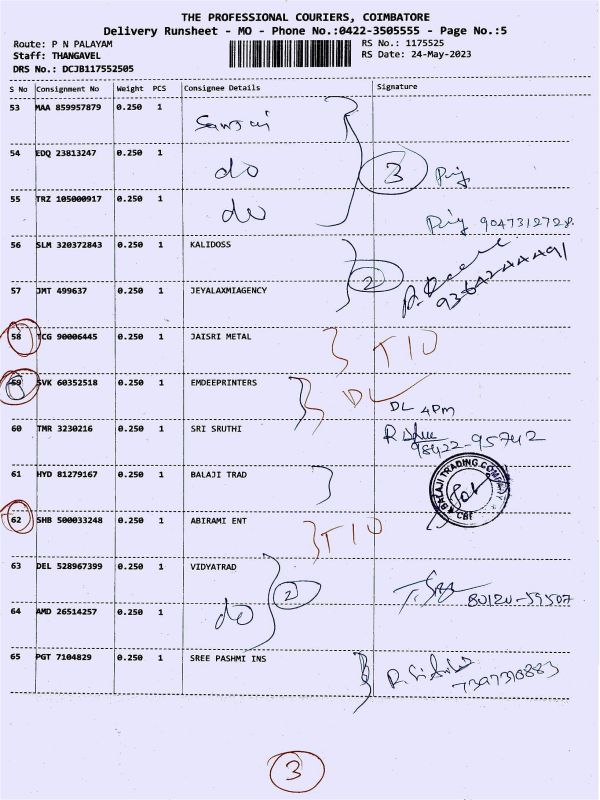 THE PROFESSIONAL COURIERS, COIMBATORE
Delivery Runsheet - MO - Phone No.:0422-3505555 - Page No.:5
Route: P N PALAYAM RS No.: 1175525
Staff: THANGAVEL RS Date: 24-May-2023
DRS No.: DCJB117552505
S No Consignment No Weight PCS Consignee Details Signature
53 MAA 859957879 0.250 1 Sanjai
54 EDQ 23813247 0.250 1 do 3
55 TRZ 105000917 0.250 1 do 9047312728
56 SLM 320372843 0.250 1 KALIDOSS
57 JMT 499637 0.250 1 JEYALAXMIAGENCY 2
58 TCG 90006445 0.250 1 JAISRI METAL TIO
59 SVK 60352518 0.250 1 EMDEEPRINTERS DL
DL 4PM
60 TMR 3230216 0.250 1 SRI SRUTHI 98422-95742
61 HYD 81279167 0.250 1 BALAJI TRAD BALAJI TRADING COMPANY CBE
62 SHB 500033248 0.250 1 ABIRAMI ENT TIO
63 DEL 528967399 0.250 1 VIDYATRAD 2 80120-59507
64 AMD 26514257 0.250 1 do
65 PGT 7104829 0.250 1 SREE PASHMI INS
3